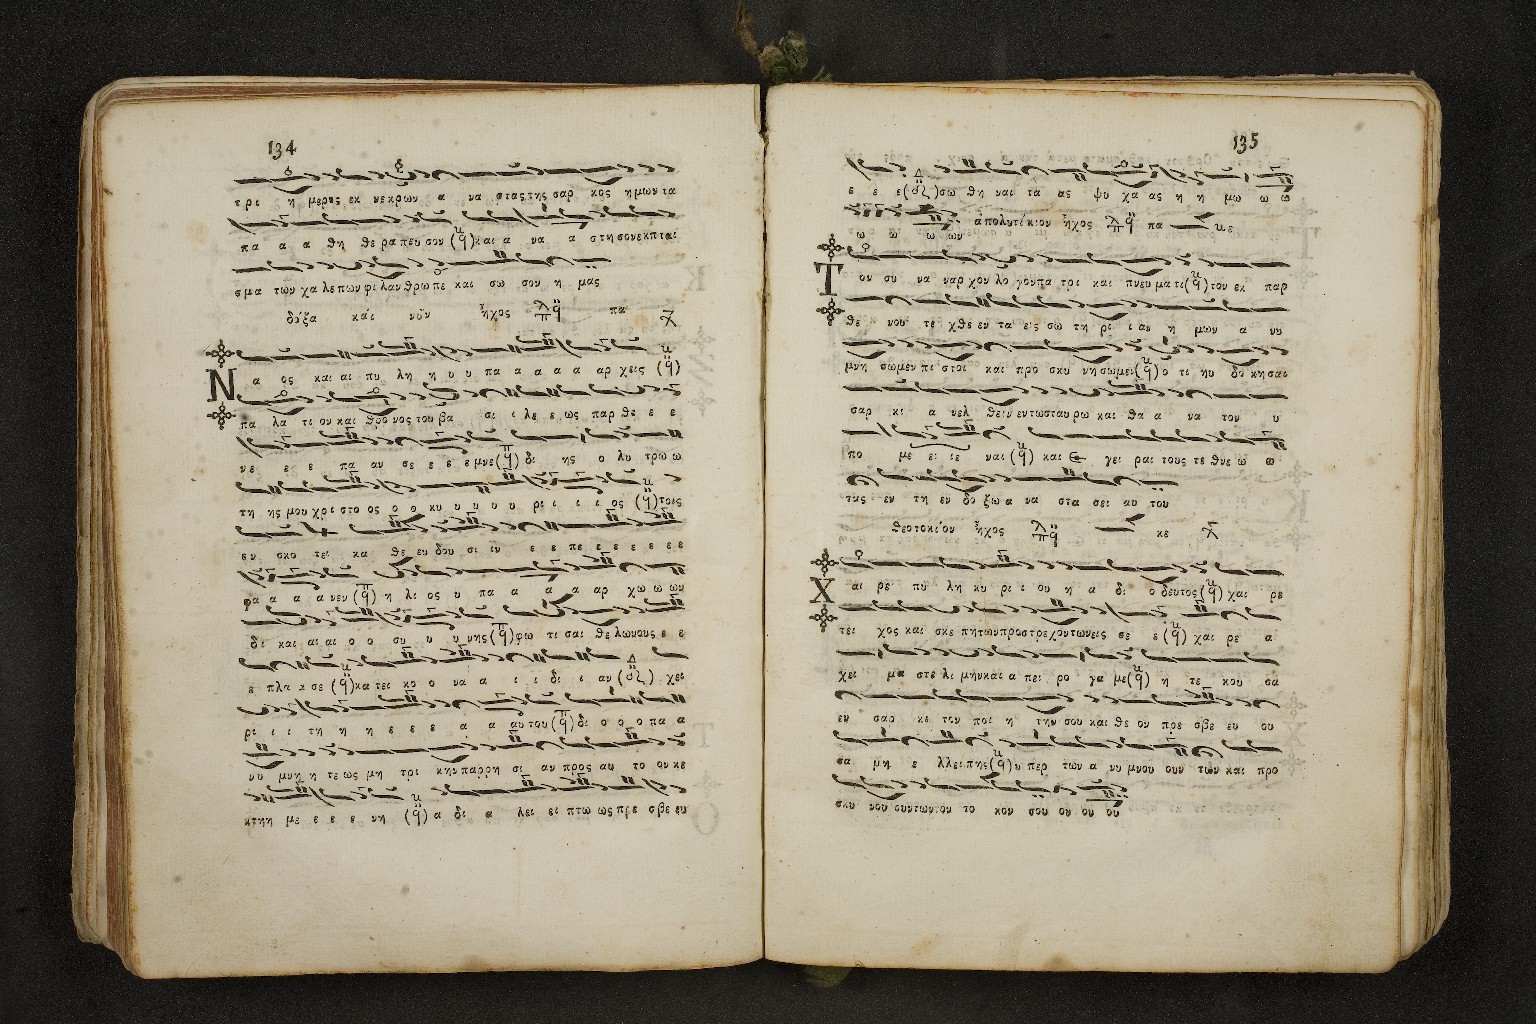 134
τρι η μερος εκ νεκρων α να στας της σαρ κος ημων τα
πα α α θη θε ρα πευ σον (q) και α να α στησον εκ πται
σμα των χα λε πων φι λαν θρω πε και σω σον η μας
δόξα καὶ νῦν ἦχος πλ q πα
Ν α ος και αι πυ λη η υ υ πα α α α α αρ χεις (q)
πα λα τι ον και θρο νος του βα σι ι λε ε ως παρ θε ε ε
νε ε ε πα αν σε ε ε ε μνε (q) δι ης ο λυ τρω ω
τη ης μου χρι στο ος ο ο κυ υ υ υ υ ρι ι ι ι ος (q) τοις
εν σκο τει κα θε ευ δου σι ιν ε ε πε ε ε ε ε ε ε
φα α α α νεν (q) η λι ος υ πα α α α αρ χω ω ων
δι και αι αι ο ο συ υ υ υ νης (q) φω τι σαι θε λων ους ε ε
ε πλα α σε (q) κα τει κο ο να α ι ι δι ι αν ( ) χει
ρι ι ι τη η η ε ε ε α α αυ του (q) δι ο ο ο πα α
νυ μνη η τε ως μη τρι κην παρρη σι αν προς αυ το ον κε
κτημ με ε ε ε νη (q) α δι α λει ει πτω ως πρε σβε ευ
135
ε ε ε ( ) σω θη ναι τα ας ψυ χα ας η η μω ω ω
ω ω ω ων ἀπολυτίκιον ἦχος πλ q πα κε
Τ ον συ να ναρ χον λο γον πα τρι και πνευ μα τι (q) τον εκ παρ
θε νου τε χθε εν τα εις σω τη ρι ι αν η μων α νυ
μνη σωμεν πι στοι και προ σκυ νησωμεν (q) ο τι ηυ δο κησαι
σαρ κι α νελ θειν εν τω σταυ ρω και θα α να τον υ
πο με ει ει ναι (q) και ε γει ραι τους τε θνε ω ω
τας εν τη εν δο ξω α να στα σει αυ του
θεοτοκίον ἦχος πλ q κε
Χ αι ρε πυ λη κυ ρι ι ου η α δι ο δευτος (q) χαι ρε
τει χος και σκε πη των προστρεχοντων εις σε ε (q) χαι ρε α
χει μα στε λι μην και α πει ρο γα με (q) η τε κου σα
εν σαρ κι τον ποι η την σου και θε ον πρε σβε ευ ου
σα μη ε λλει πης (q) υ περ των α νυ μνου ουν των και προ
σκυ νου ουν των τον το κον σου ου ου ου